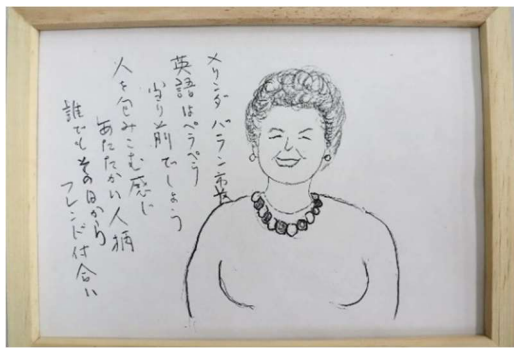 メリンダ バラン市長
英語はペラペラ
当り前でしょう
人を包みこむ感じ
あたたかい人柄
誰でもその日から
フレンド付合い